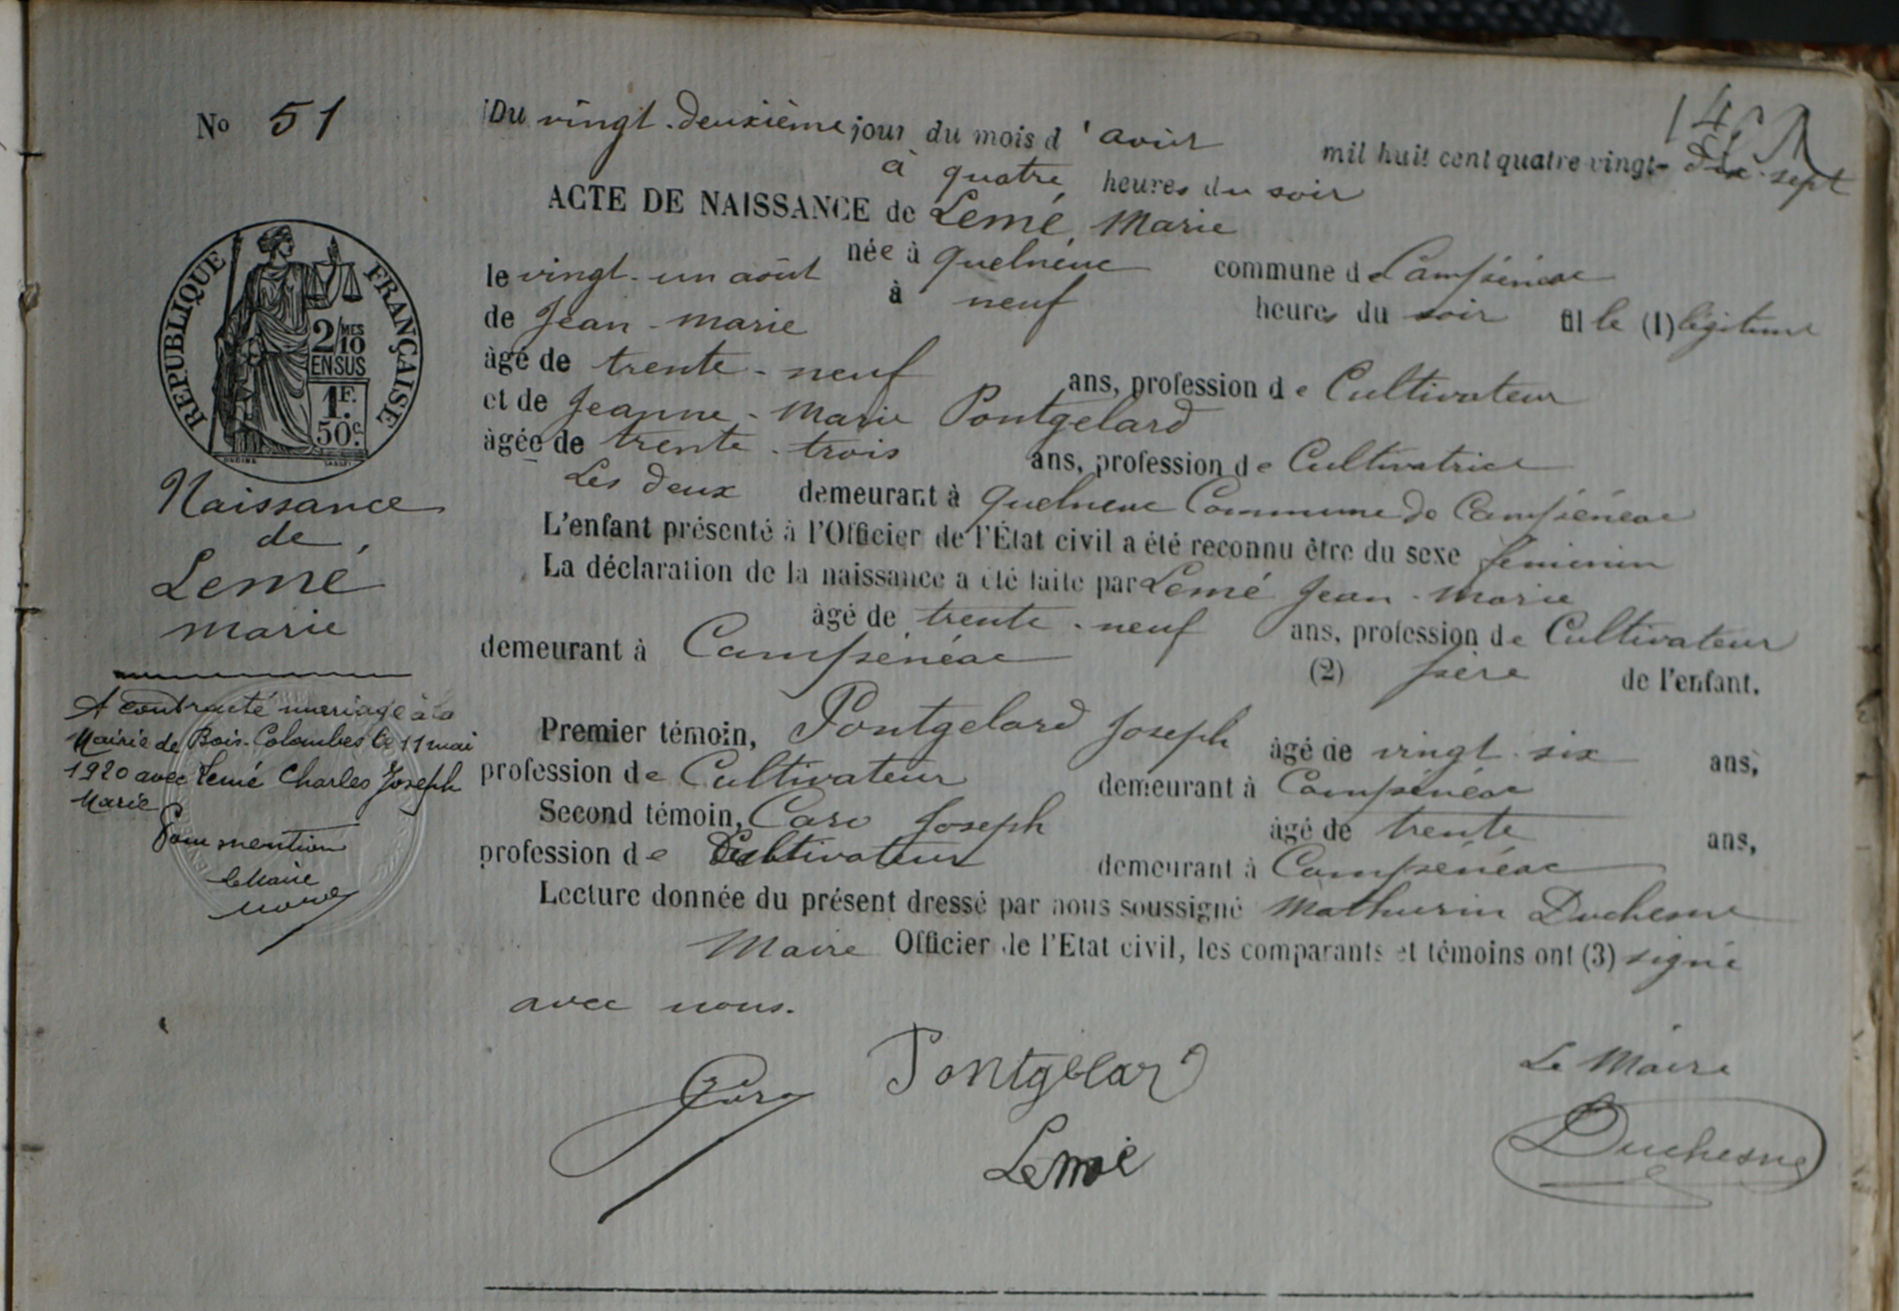 No 51
Du vingt-deuxième jour du mois d'août mil huit cent quatre vingt-dix-sept
à quatre heures du soir
ACTE DE NAISSANCE de Lemé, Marie
née à quelneuc commune de Campénéac
le vingt-un août à neuf heures du soir fille (1) légitime
de Jean-marie
âgé de trente-neuf ans, profession de Cultivateur
et de Jeanne-Marie Pontgelard
âgée de trente-trois ans, profession de Cultivatrice
Les deux demeurant à quelneuc Commune de Campénéac
L'enfant présenté à l'Officier de l'État civil a été reconnu être du sexe féminin
La déclaration de la naissance a été faite par Lemé Jean-Marie
âgé de trente-neuf ans, profession de Cultivateur
demeurant à Campénéac (2) père de l'enfant.
Premier témoin, Pontgelard Joseph âgé de vingt-six ans,
profession de Cultivateur demeurant à Campénéac
Second témoin, Caro Joseph âgé de trente ans,
profession de Cultivateur demeurant à Campénéac
Lecture donnée du présent dressé par nous soussigné Mathurin Duchesne
Maire Officier de l'Etat civil, les comparants et témoins ont (3) signé
avec nous.
Caro Pontgelard Le Maire
Lemé Duchesne
REPUBLIQUE FRANÇAISE
2/10 MES
EN SUS
1F.
50c.
Naissance
de
Lemé
marie
A contracté mariage à la
Mairie de Bois-Colombes le 11 mai
1920 avec Lemé Charles Joseph
Marie
Pour mention
Le Maire